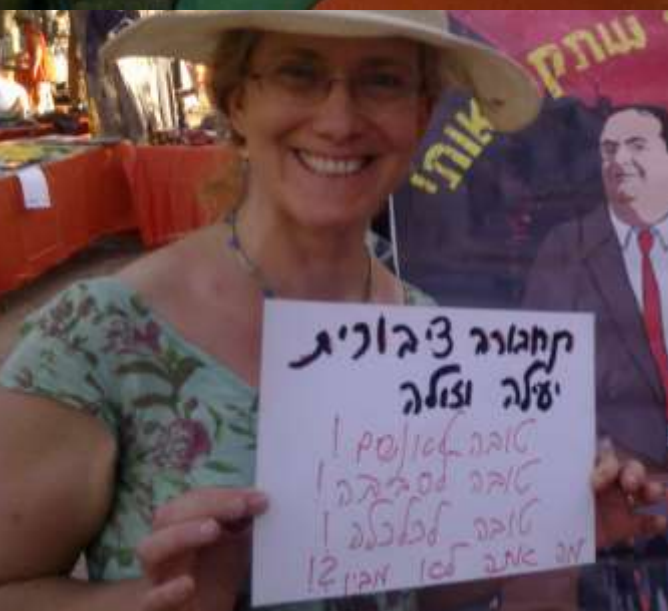 שתק אותי
תחבורה ציבורית
יעילה וזולה
טובה לאנשים!
טובה לסביבה!
טובה לכלכלה!
מה אתה לא מבין?!